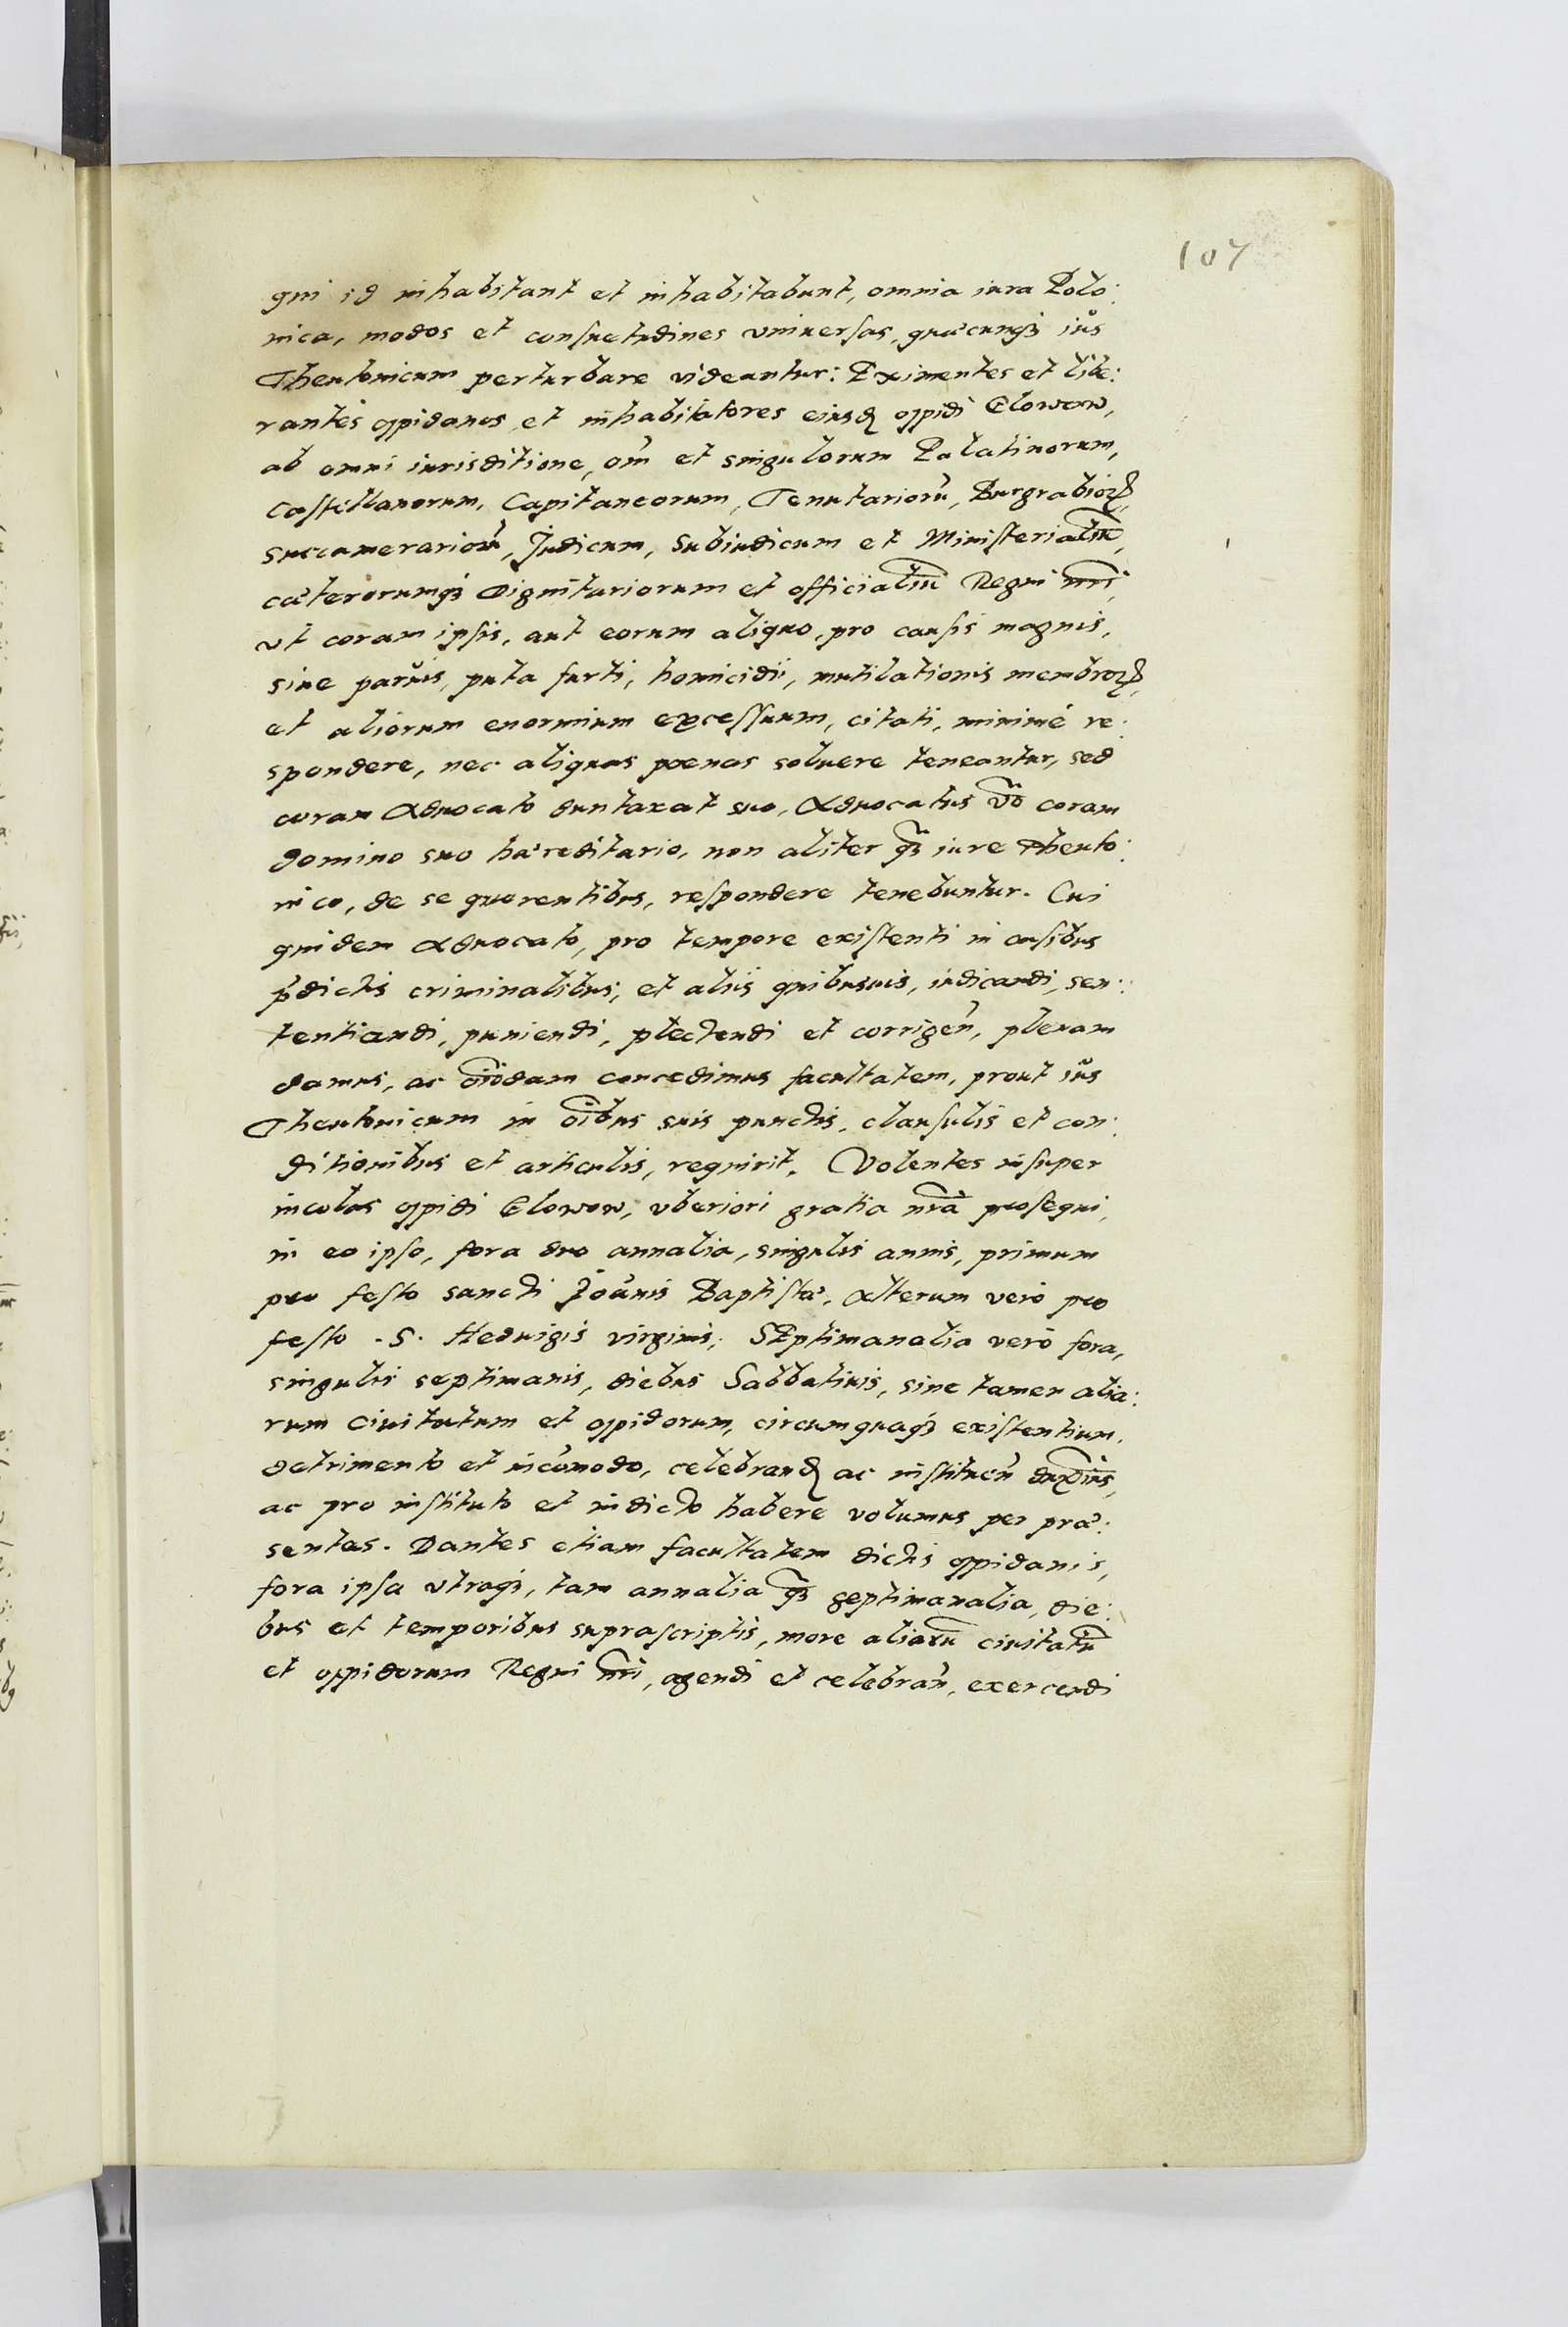 107
qui id inhabitant et inhabitabunt, omnia iura Polo:
nica, modos et consuetudines vniuersas, quæcunqȝ iůs
Theutonicum perturbare videantur: Eximentes et libe:
rantes oppidanos et inhabitatores eiusđ oppidi Clowow,
ab omni iurisditione, om̃ et singulorum Palatinorum,
Castellanorum, Capitaneorum, Tenutariorũ, Burgrabioꝝ,
succamerariorũ, Judicum, Subiudicum et Ministerialiũ,
cæterorumqȝ Dignitariorum et officialiũ Regni nri̅,
vt coram ipsis, aut eorum aliquo, pro causis magnis,
siue paruis, puta furti, homicidii, mutilationis membroꝝ,
et aliorum enormium excessuum, citati, minimè re:
spondere, nec aliquas poenas soluere teneantur, sed
coram Aduocato duntaxat suo, Aduocatus v̅o coram
domino suo hæreditario, non aliter qȝ̃ iure Theuto:
nico, de se querentibus, respondere tenebuntur. Cui
quidem Aduocato, pro tempore existenti in casibus
p̃dictis criminalibus, et aliis quibusuis, iudicandi, sen:
tentiandi, puniendi, plectendi et corrigen̅, plenam
damus, ac oi̅odam concedimus facultatem, prout iůs
Theutonicum in oi̅bus suis punctis, clausulis et con:
ditionibus et articulis, requirit. Volentes insuper
incolas oppidi Clowow, vberiori gratia nr̅a prosequi,
in eo ipso, fora duo annalia, singulis annis, primum
pro festo sancti Joãnis Baptistæ, Alterum verò pro
festo .S. Heduigis virginis, SEptimanalia verò fora,
singulis septimanis, diebus Sabbatinis, sine tamen alia:
rum Ciuitatum et oppidorum, circumquaqȝ existentium,
detrimento et incõmodo, celebranđ ac instituen̅ duximus,
ac pro instituto et indicto habere volumus per præ:
sentes. Dantes etiam facultatem dictis oppidanis,
fora ipsa vtraqȝ, tam annalia qȝ̃ septimanalia, die:
bus et temporibus suprascriptis, more aliarũ ciuitatũ
et oppidorum Regni nri̅, agendi et celebran̅, exercendi